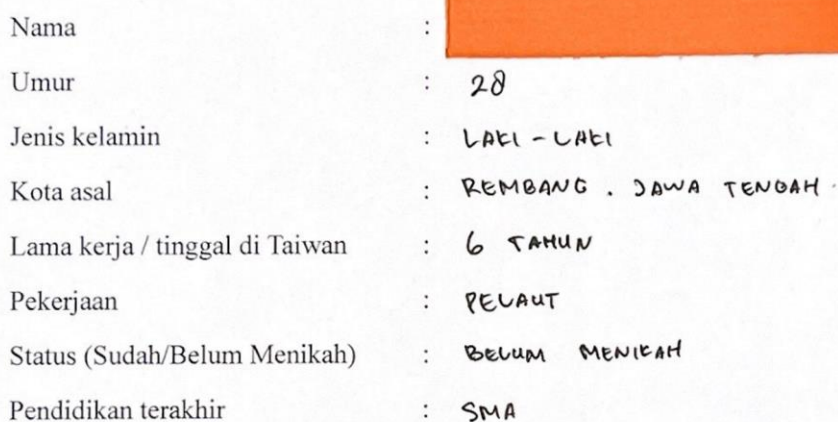 Nama :
Umur : 28
Jenis kelamin : LAKI - LAKI
Kota asal : REMBANG . JAWA TENGAH .
Lama kerja / tinggal di Taiwan : 6 TAHUN
Pekerjaan : PELAUT
Status (Sudah/Belum Menikah) : BELUM MENIKAH
Pendidikan terakhir : SMA